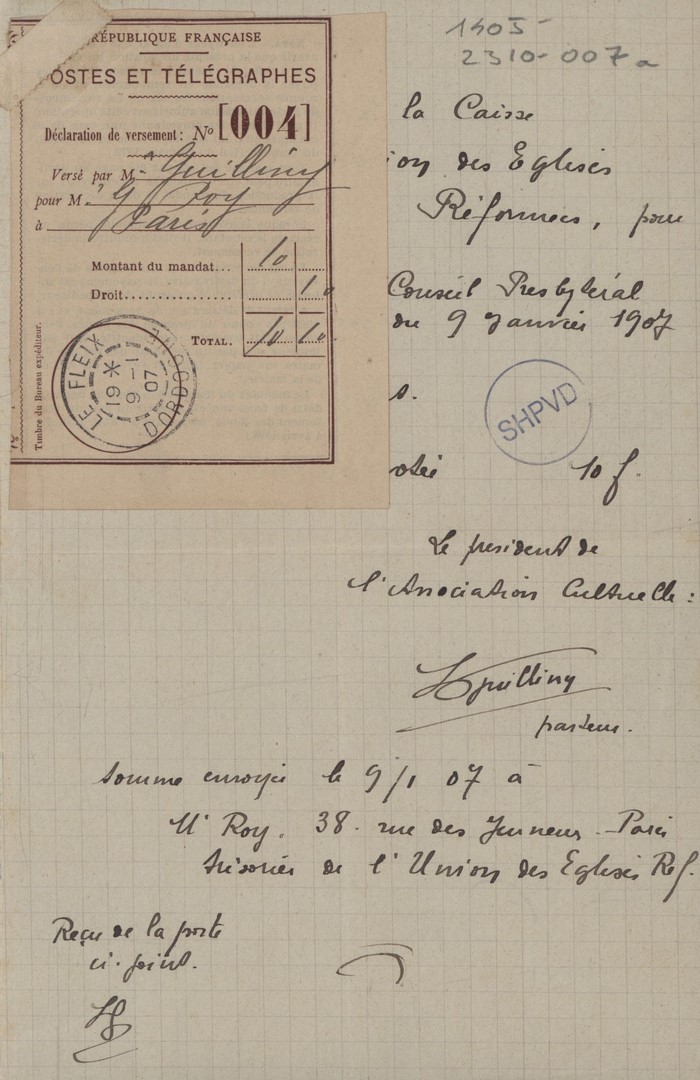 1405
2310-007a
RÉPUBLIQUE FRANÇAISE
POSTES ET TÉLÉGRAPHES
Déclaration de versement: No [004]
Versé par M. Guilliny
pour M. G Roy
à Paris
Montant du mandat... 10
Droit............... 10
TOTAL. 10 10
Timbre du Bureau expéditeur.
LE FLEIX DORDOGNE
19 *
9 -1
07
la Caisse
ion des Eglises
Réformées, pour
Conseil Presbytéral
du 9 Janvier 1907
s.
SHPVD
otée 10 f.
Le président de
l'Association Cultuelle :
Guilliny
pasteur.
somme envoyée le 9/1 07 à
Mr Roy. 38. rue des Jeuneurs - Paris
trésorier de l'Union des Eglises Ref.
Reçu de la poste
ci-joint.